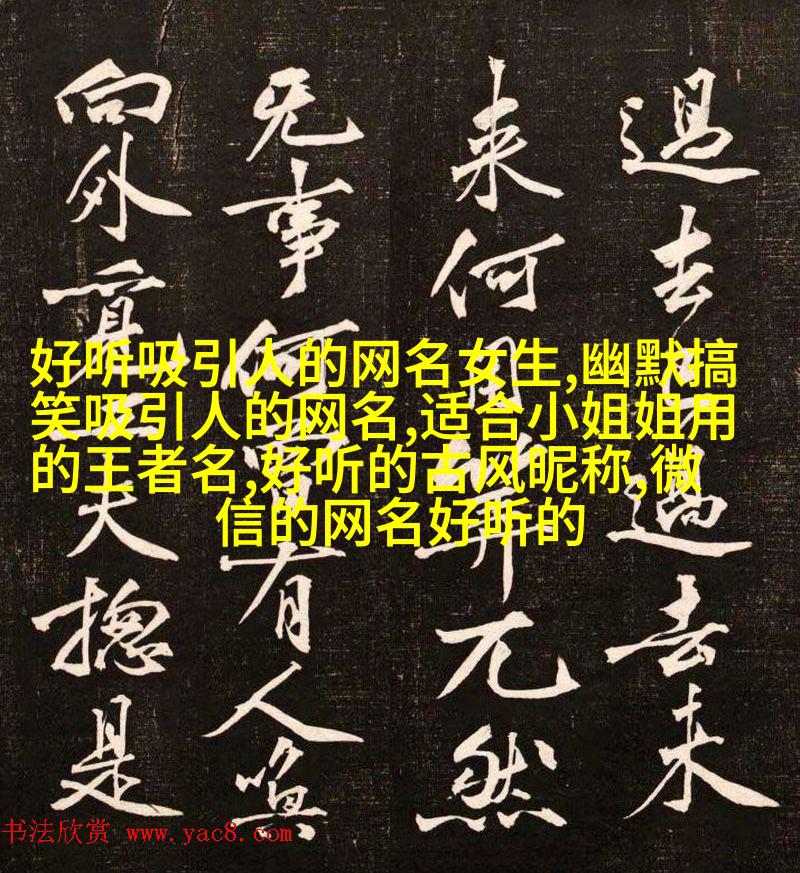 過去過去未
来何用筭兀然
旡事何曾有人喚
向外覓工夫揔是
好听吸引人的网名女生,幽默搞
笑吸引人的网名,适合小姐姐用
的王者名,好听的古风昵称,微
信的网名好听的
书法欣赏 www.yac8.com